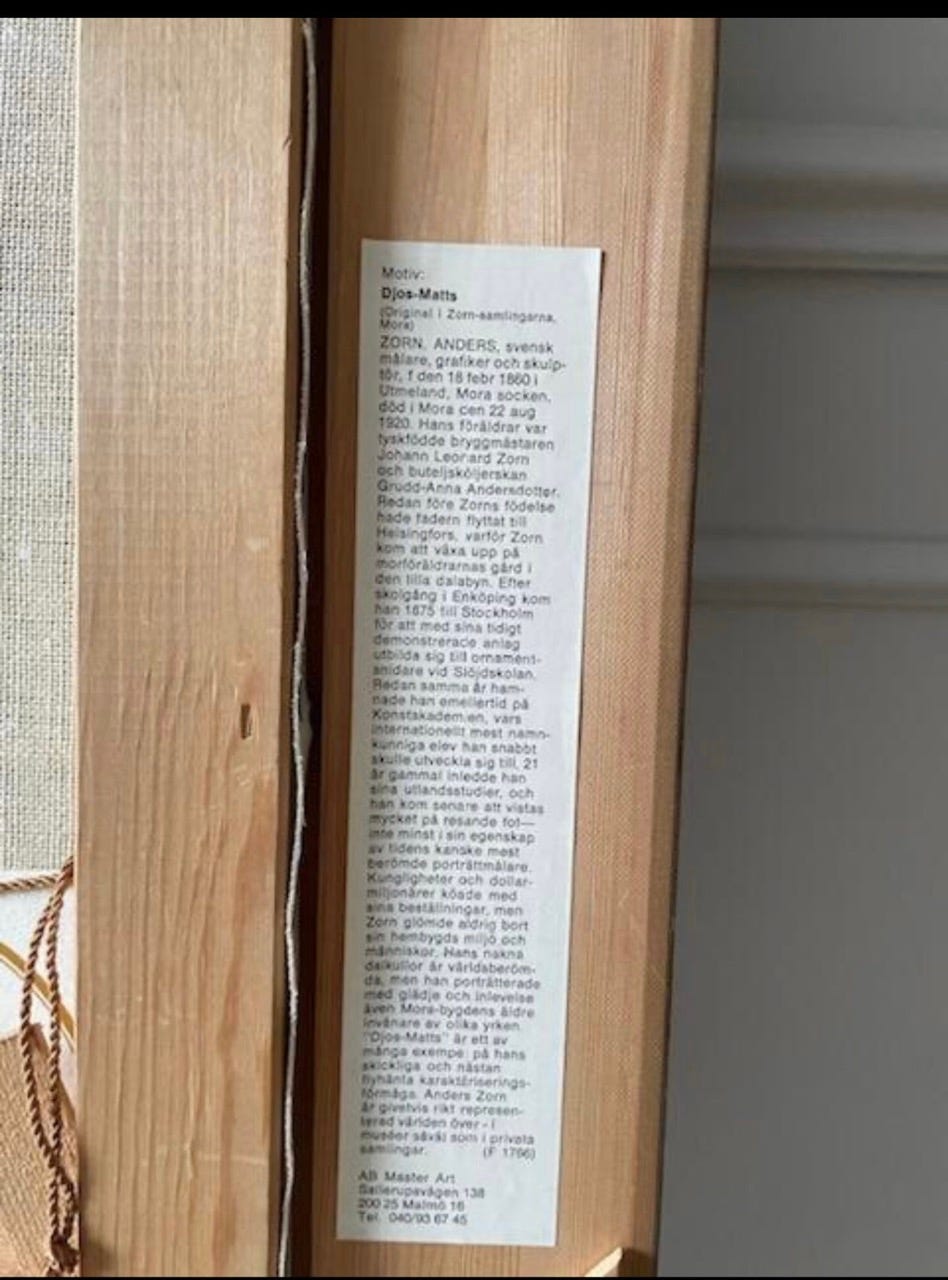 Motiv:
Djos-Matts
(Original i Zorn-samlingarna,
Mora)
ZORN, ANDERS, svensk
målare, grafiker och skulp-
tör, f den 18 febr 1860 i
Utmeland, Mora socken,
död i Mora den 22 aug
1920. Hans föräldrar var
tyskfödde bryggmästaren
Johann Leonard Zorn
och buteljsköljerskan
Grudd-Anna Andersdotter.
Redan före Zorns födelse
hade fadern flyttat till
Helsingfors, varför Zorn
kom att växa upp på
morföräldrarnas gård i
den lilla dalabyn. Efter
skolgång i Enköping kom
han 1875 till Stockholm
för att med sina tidigt
demonstrerade anlag
utbilda sig till ornament-
snidare vid Slöjdskolan.
Redan samma år ham-
nade han emellertid på
Konstakademien, vars
internationellt mest namn-
kunniga elev han snabbt
skulle utveckla sig till. 21
år gammal inledde han
sina utlandsstudier, och
han kom senare att vistas
mycket på resande fot—
inte minst i sin egenskap
av tidens kanske mest
berömde porträttmålare.
Kungligheter och dollar-
miljonärer köade med
sina beställningar, men
Zorn glömde aldrig bort
sin hembygds miljö och
människor. Hans nakna
dalkullor är världsberöm-
da, men han porträtterade
med glädje och inlevelse
även Mora-bygdens äldre
invånare av olika yrken.
"Djos-Matts" är ett av
många exempel på hans
skickliga och nästan
flyhänta karaktäriserings-
förmåga. Anders Zorn
är givetvis rikt represen-
terad världen över - i
muséer såväl som i privata
samlingar. (F 1766)
AB Master Art
Sallerupsvägen 138
200 25 Malmö 16
Tel. 040/93 67 45